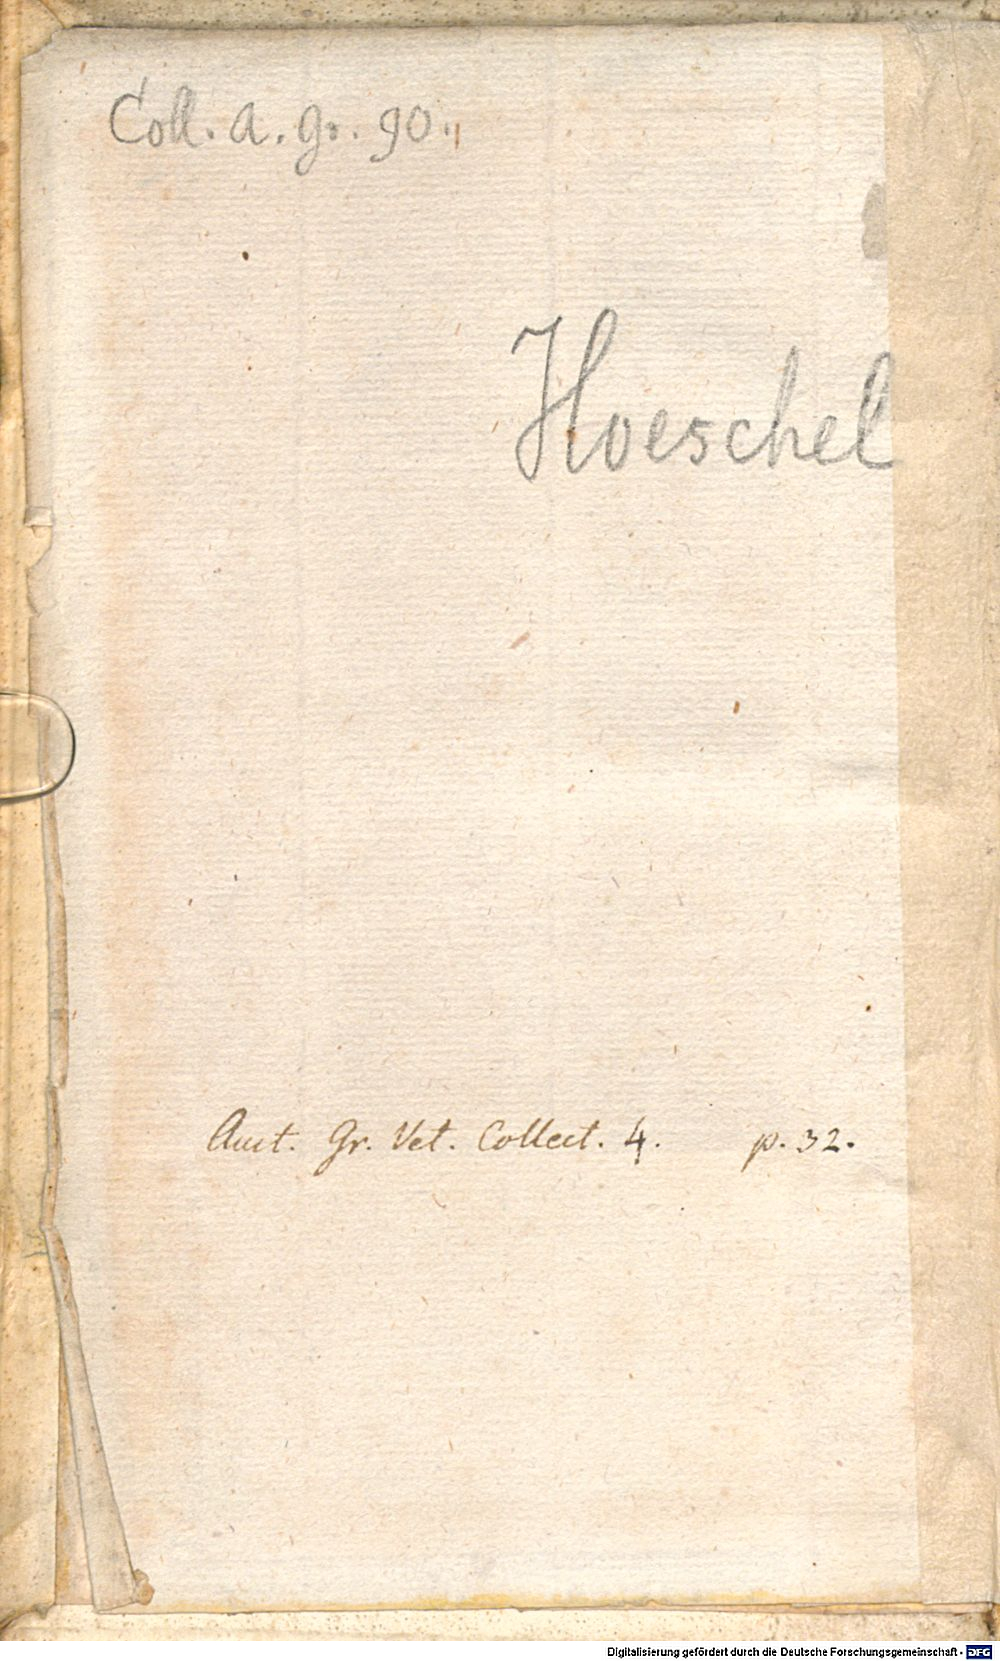 Coll. A. gr. 90.
Hoeschel
Auct. Gr. Vet. Collect. 4. p. 32.
Digitalisierung gefördert durch die Deutsche Forschungsgemeinschaft - DFG